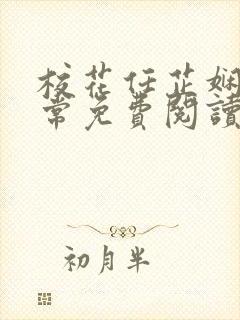 校花任芷娴
常免费閱讀
初月半